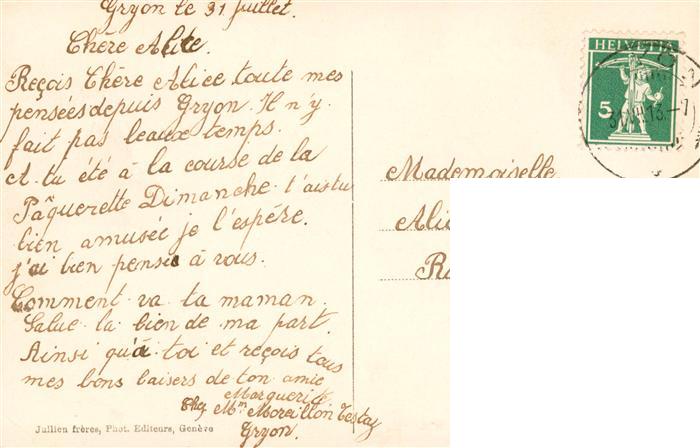 Gryon le 31 juillet.
Chère Alice.
Reçois Chère Alice toute mes
pensées depuis Gryon. Il n'y
fait pas beaux temps.
A tu été à la course de la
Pâquerette Dimanche t'aistu
bien amusée je l'espére.
j'ai bien pensé à vous.
Comment va ta maman.
Salue la bien de ma part.
Ainsi qu'à toi et reçois tous
mes bons baisers de ton amie
Marguerite
Chez Mme Moreillon Testaz
Gryon.
Jullien frères, Phot. Editeurs, Genève
HELVETIA
5
31.VII.13.-7
Mademoiselle
Alic